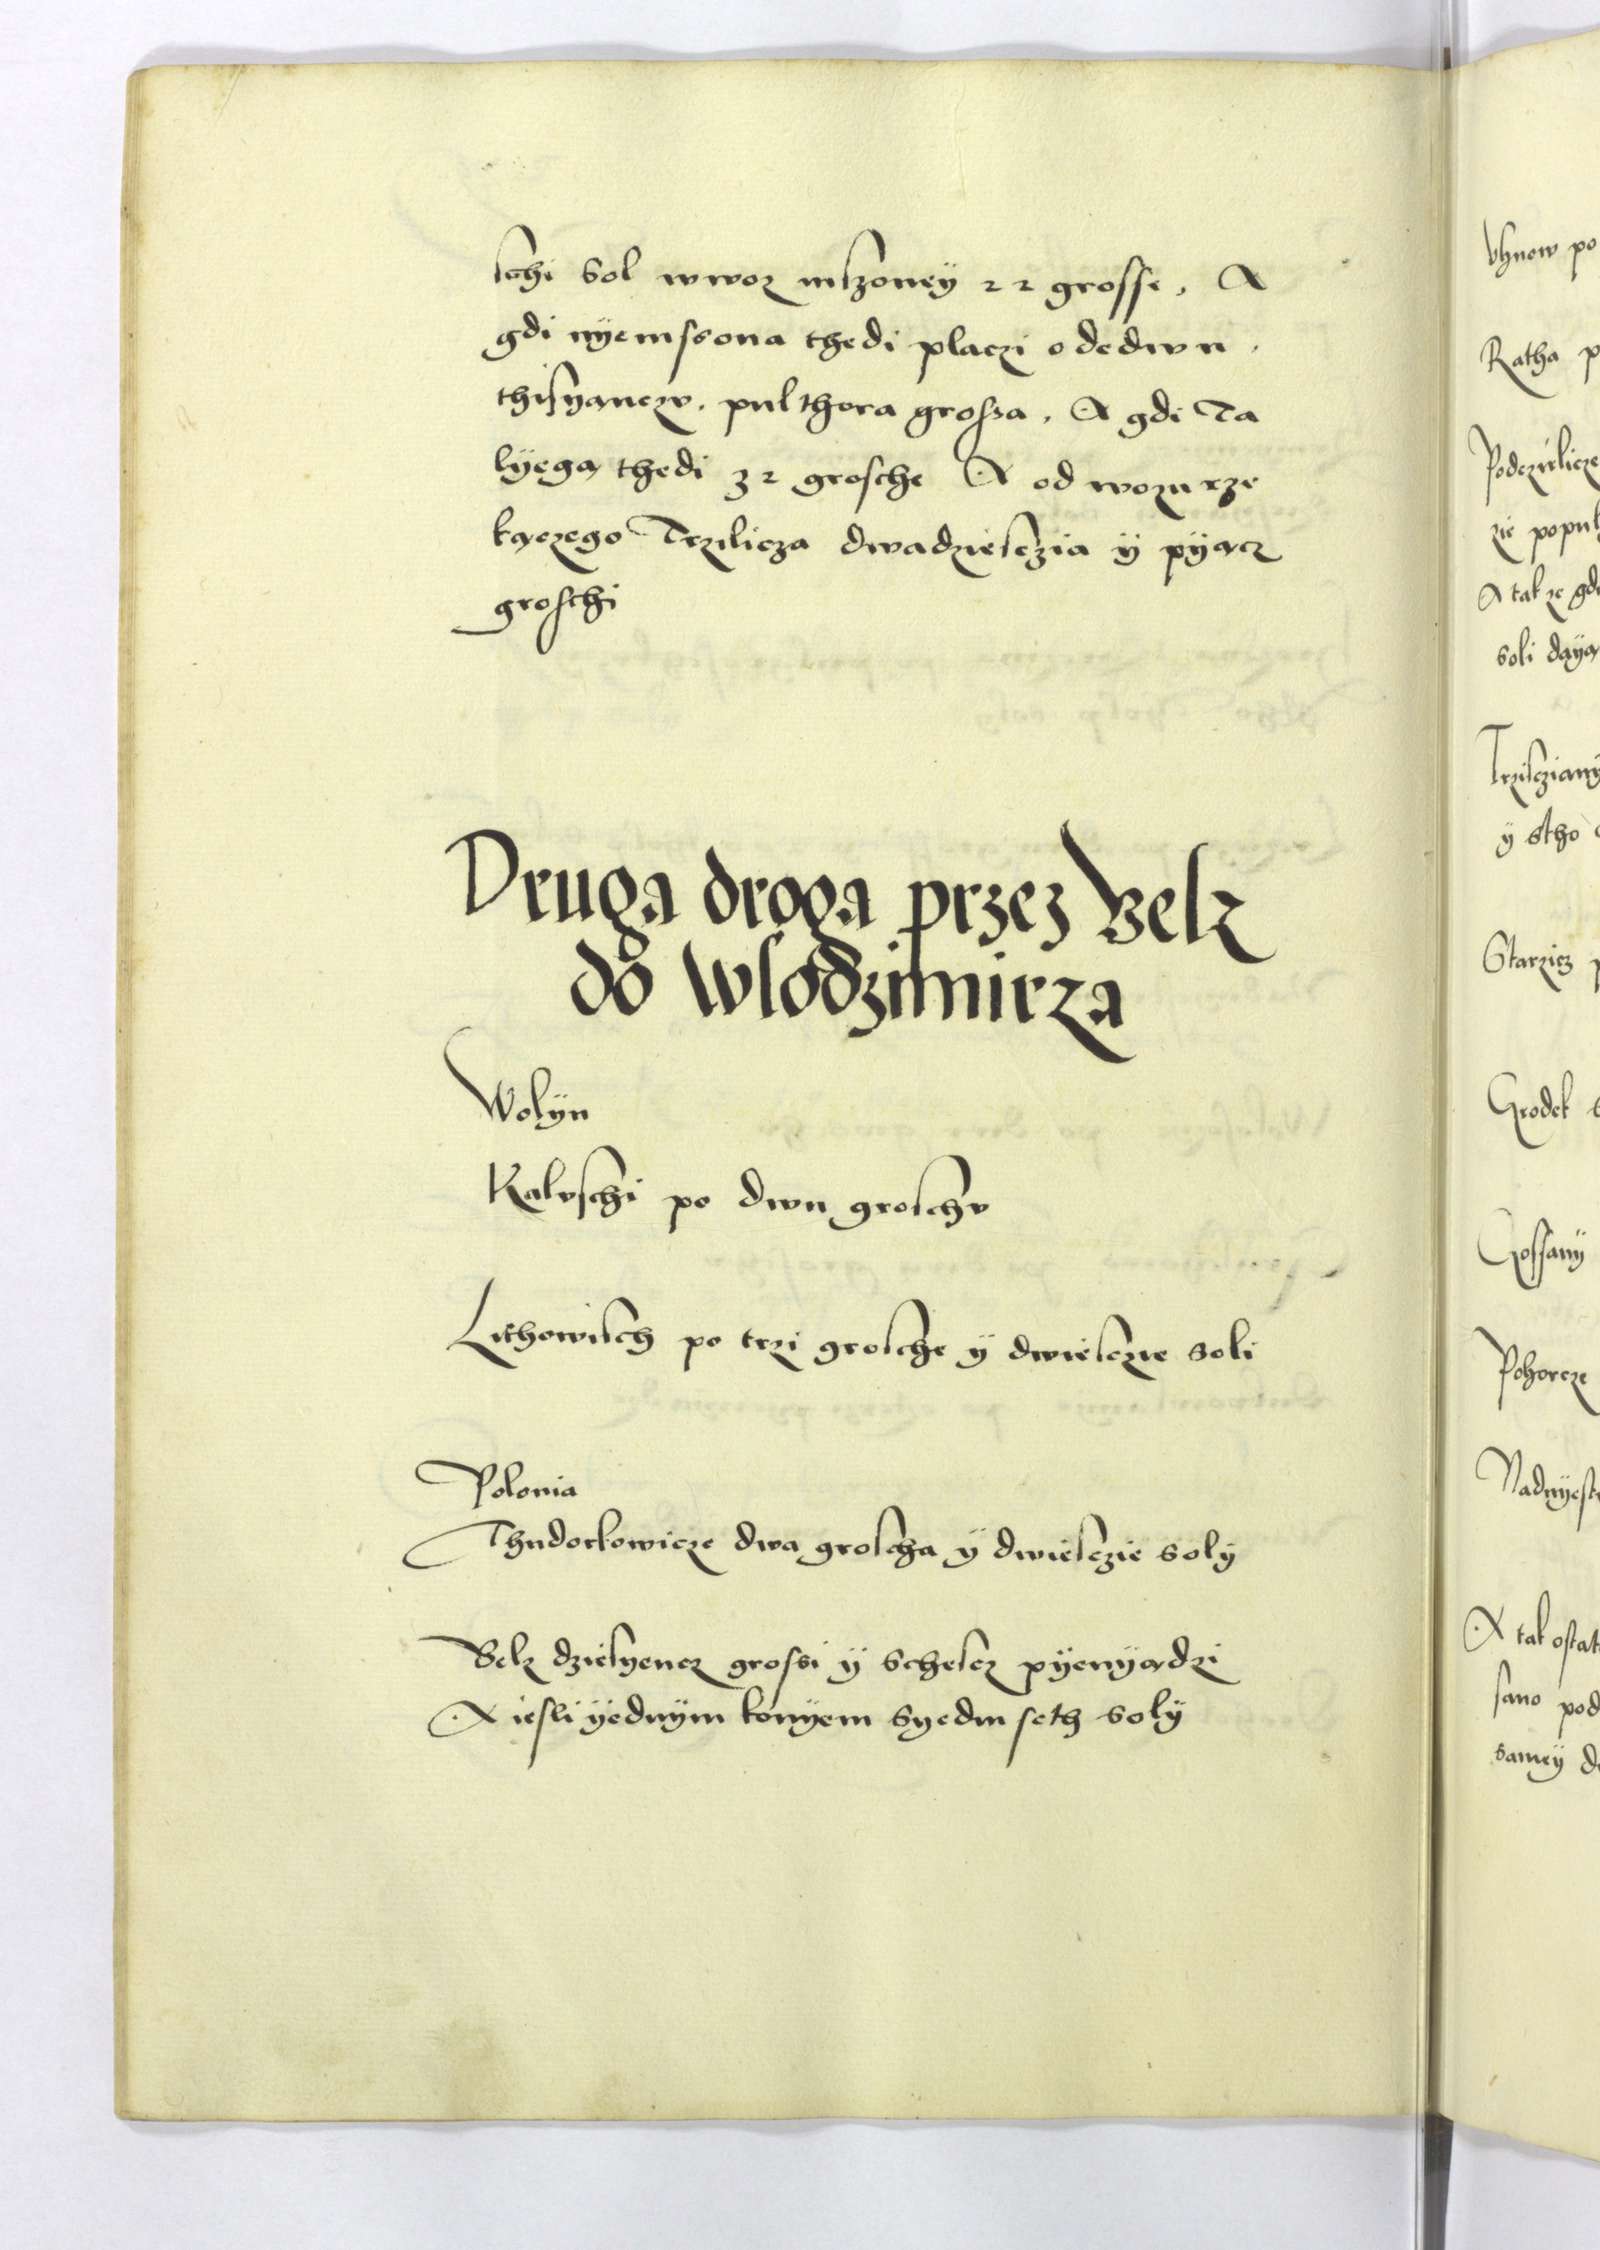 schi Sol wwoz mszoney 22 grosse, A
gdi nÿemssona thedi placzi odedwu
thisyanczv, pulthora grossa, A gdi Ta
lÿega thedi 32 grosche A od wozu rze
kaczego Trzilicza dwadziesczia ÿ pÿacz
groschi
Druga droga przez Belz
do Wlodzimirza
Wolÿn
Kalvschi po dwu groschv
Lithowisch po trzi grosche ÿ dwiesczie soli
Polonia
Thudorkowicze dwa groscha ÿ dwiesczie solÿ
Belz dziesyencz grossi ÿ schescz pÿenÿadzi
A iesli ÿednÿm konÿem syedm seth solÿ
Vhnow po
Ratha p
Podczirlicze
zie popul
A tak ze gdi
soli daÿa
Trzisczianÿ
ÿ stho
Starzicz
Grodek
Rossanÿ
Pohorcze
Nadnÿest
A tak ostat
sano pod
samey d